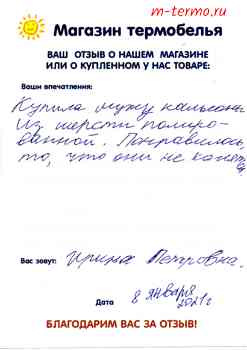 m-termo.ru
Магазин термобелья
ВАШ ОТЗЫВ О НАШЕМ МАГАЗИНЕ
ИЛИ О КУПЛЕННОМ У НАС ТОВАРЕ:
Ваши впечатления:
Купила мужу кальсоны
из шерсти полиро-
ванной. Понравилось
то, что они не
Вас зовут: Ирина Петровна.
Дата 8 января
2021г
БЛАГОДАРИМ ВАС ЗА ОТЗЫВ!